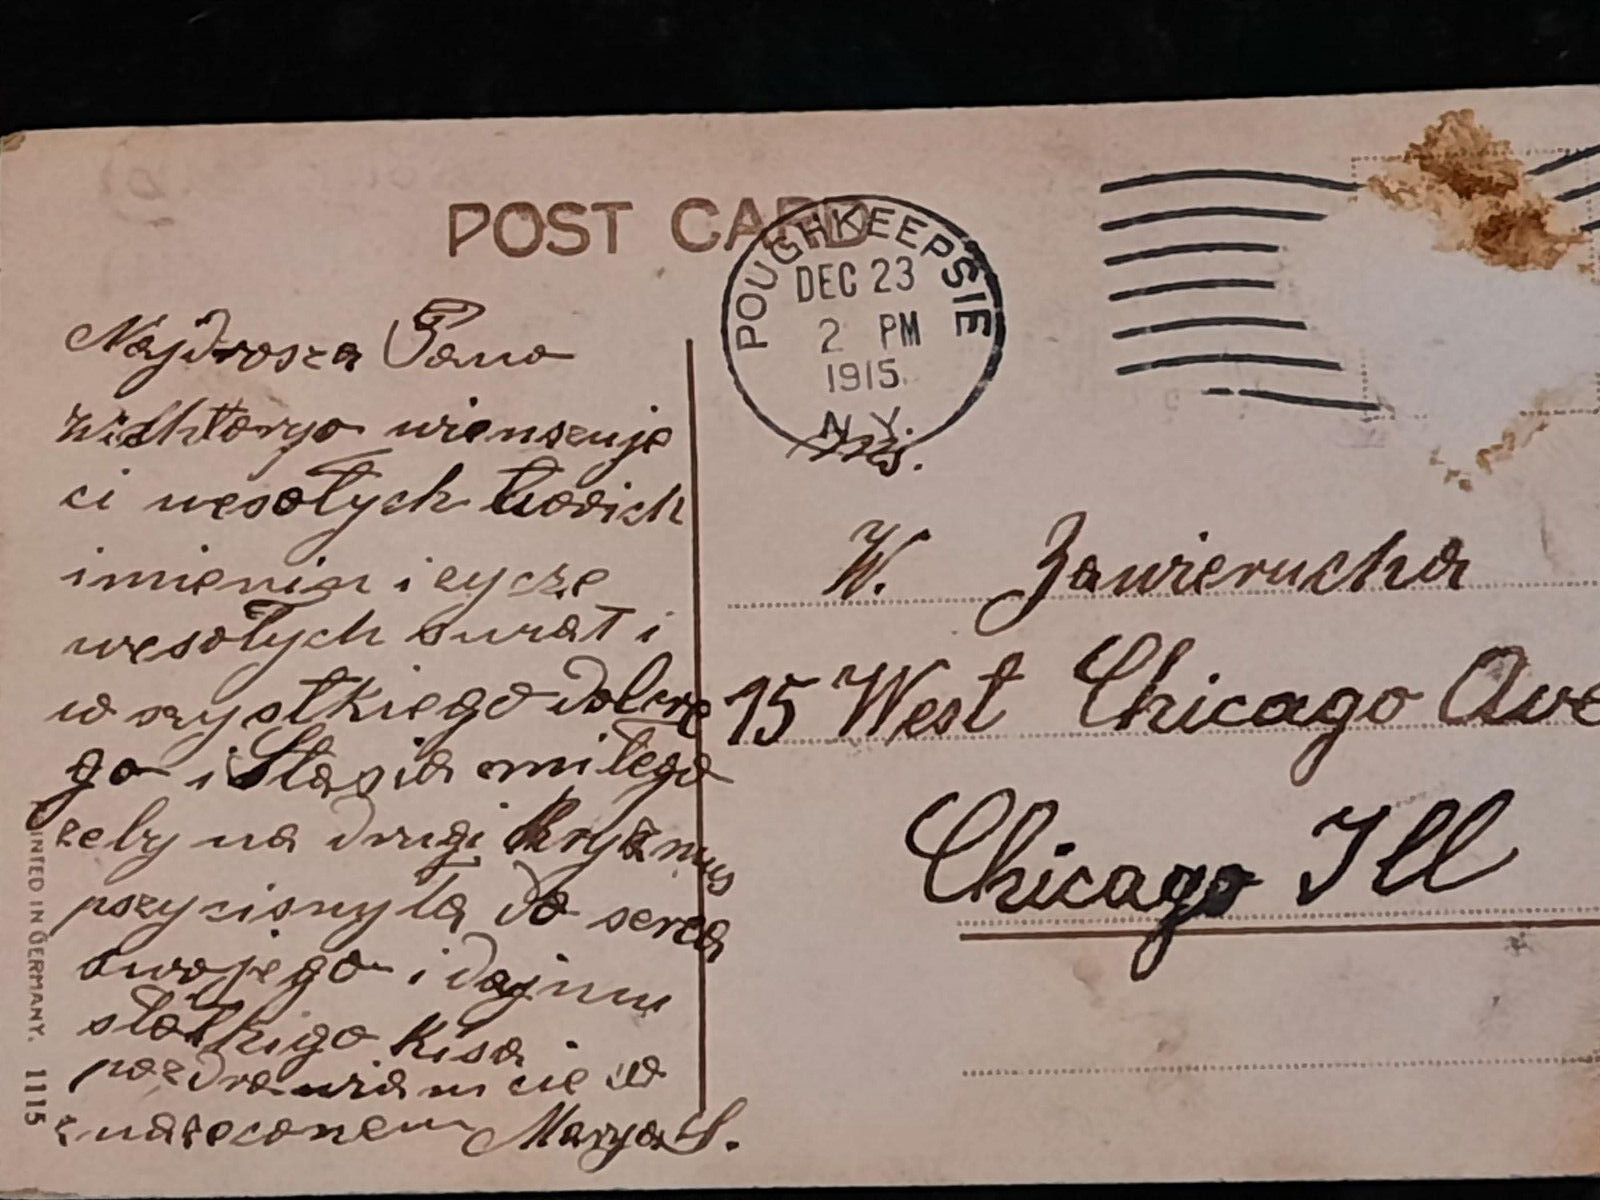 POST CARD
POUGHKEEPSIE
DEC 23
2 PM
1915
N.Y.
Najdrosza Pano
Wichtoryo wienszuje
ci wesołych twoich
imienin i rzycze
wesołych swiat i
wszystkiego dobre
go i Stasia miłego
zeby na drugi krysmus
pszycisnyła do serca
swojego i daj mu
słotkigo kisa
pozdrawiam cie
nazeconem Marya S.
Ms.
W. Zawierucha
15 West Chicago Ave
Chicago Ill
PRINTED IN GERMANY. 1115